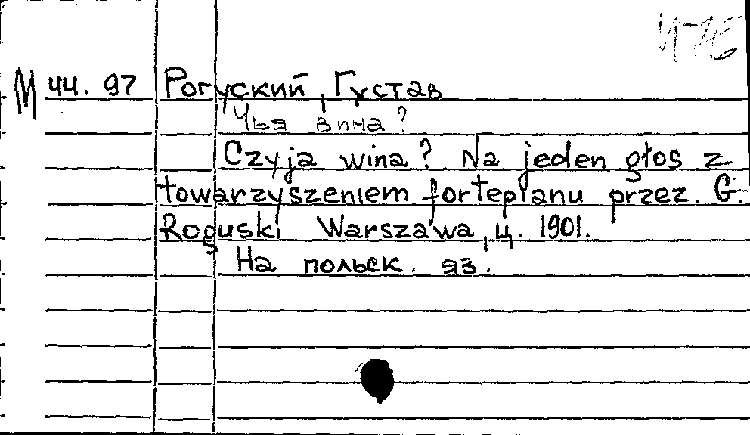 М 44.97 Рогуский, Густав
Чья вина?
Czyja wina? Na jeden głos z
towarzyszeniem fortepianu przez. G.
Roguski Warszawa, ц. 1901.
На польск. яз.